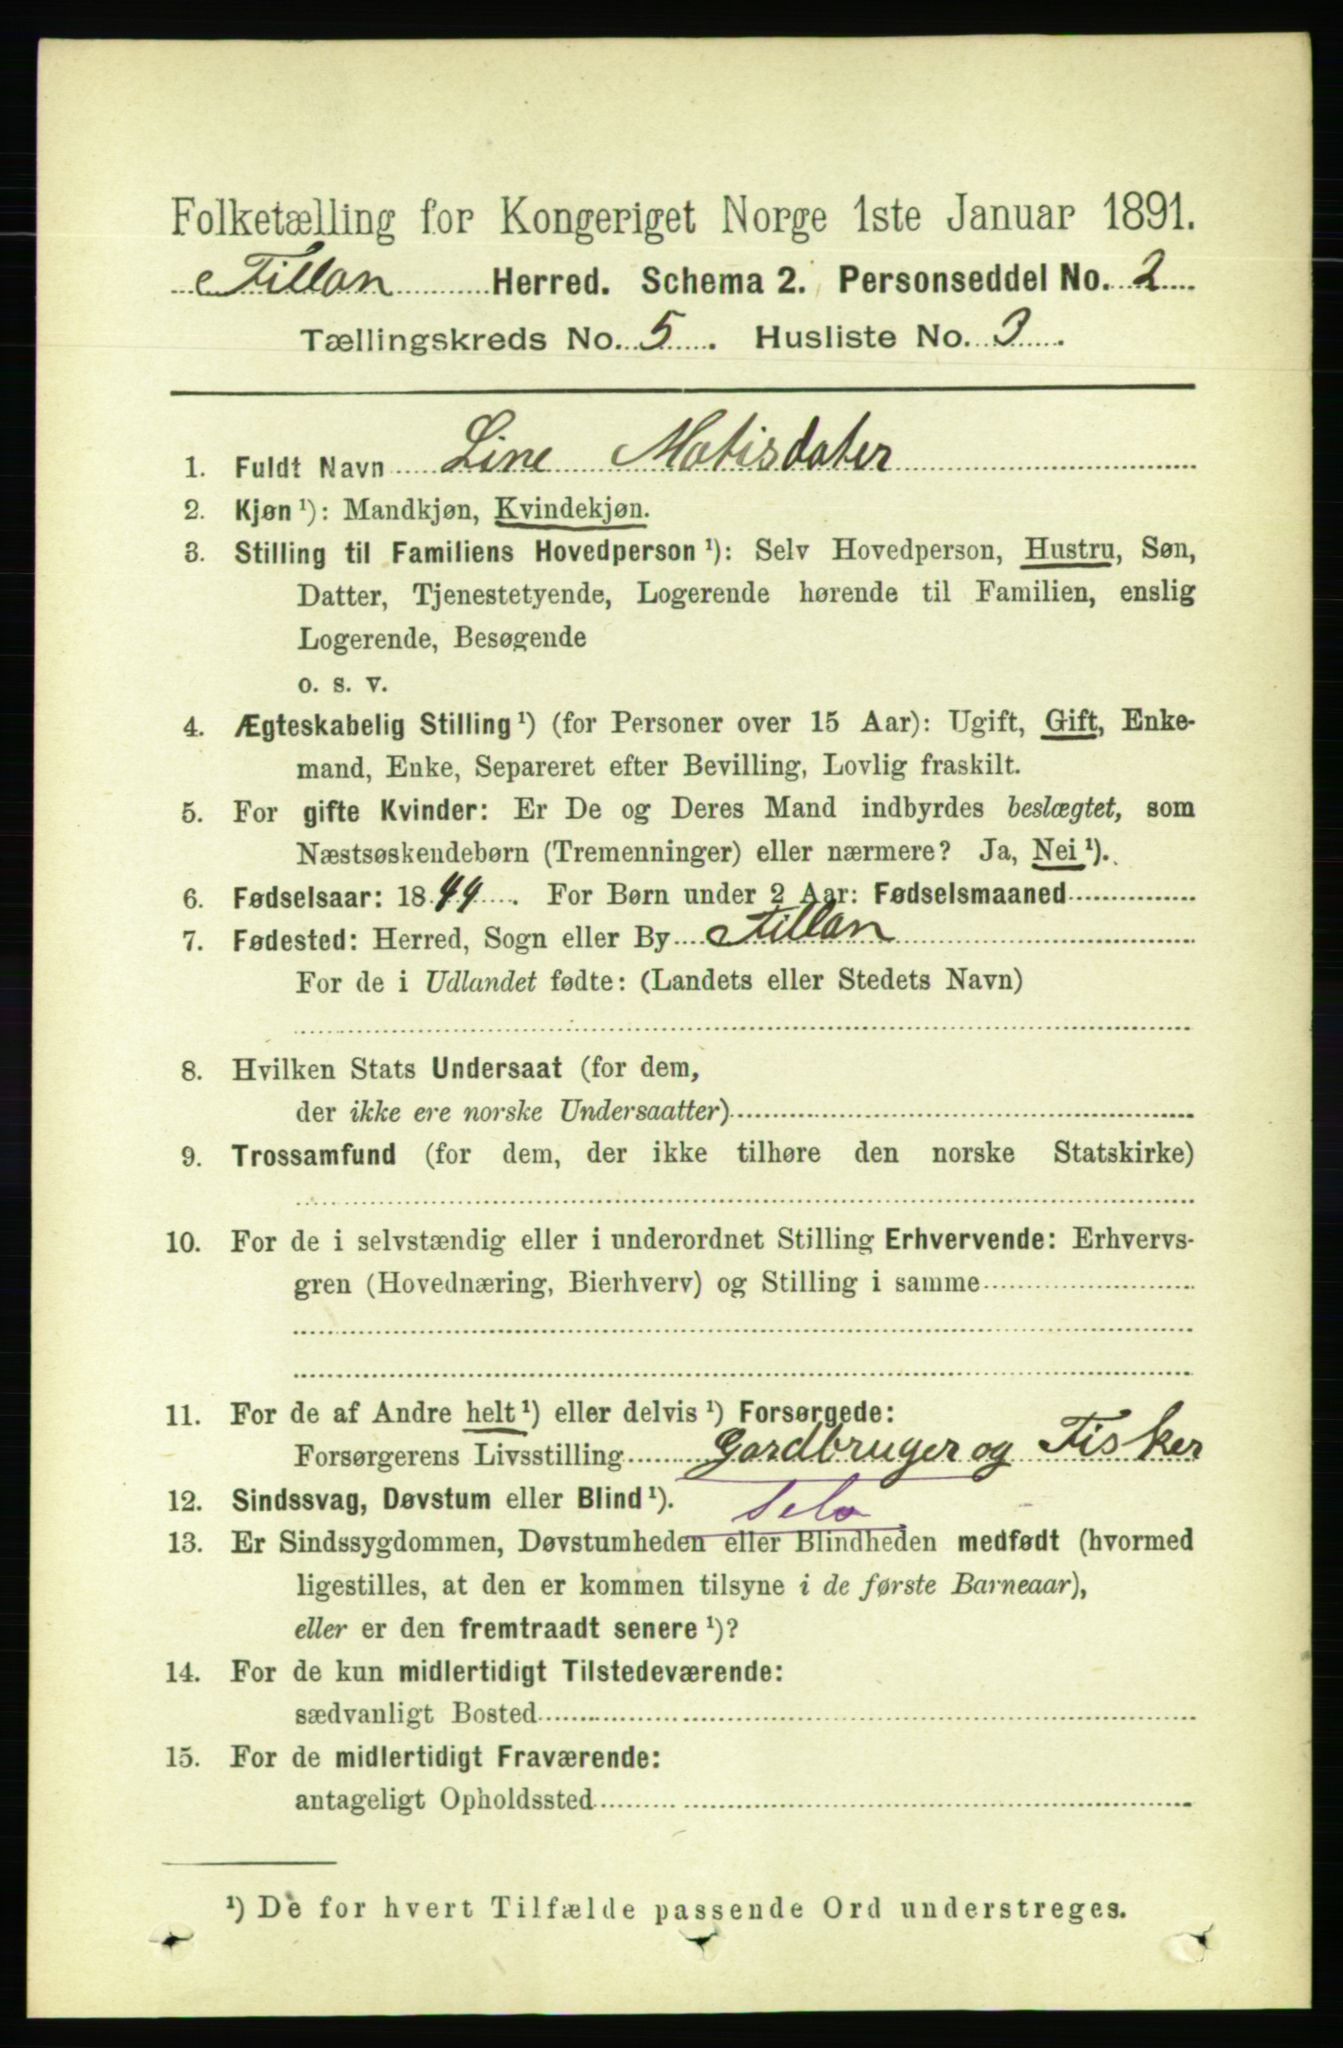 Folketælling for Kongeriget Norge 1ste Januar 1891.
Fillan Herred. Schema 2. Personseddel No. 2
Tællingskreds No. 5. Husliste No. 3.
1. Fuldt Navn Line Matisdater
2. Kjøn¹): Mandkjøn, Kvindekjøn.
3. Stilling til Familiens Hovedperson¹): Selv Hovedperson, Hustru, Søn,
Datter, Tjenestetyende, Logerende hørende til Familien, enslig
Logerende, Besøgende
o. s. v.
4. Ægteskabelig Stilling¹) (for Personer over 15 Aar): Ugift, Gift, Enke-
mand, Enke, Separeret efter Bevilling, Lovlig fraskilt.
5. For gifte Kvinder: Er De og Deres Mand indbyrdes beslægtet, som
Næstsøskendebørn (Tremenninger) eller nærmere? Ja, Nei¹).
6. Fødselsaar: 1844. For Børn under 2 Aar: Fødselsmaaned
7. Fødested: Herred, Sogn eller By Fillan
For de i Udlandet fødte: (Landets eller Stedets Navn)
8. Hvilken Stats Undersaat (for dem,
der ikke ere norske Undersaatter)
9. Trossamfund (for dem, der ikke tilhøre den norske Statskirke)
10. For de i selvstændig eller i underordnet Stilling Erhvervende: Erhvervs-
gren (Hovednæring, Bierhverv) og Stilling i samme
11. For de af Andre helt¹) eller delvis¹) Forsørgede:
Forsørgerens Livsstilling Gardbruger og Fisker
12. Sindssvag, Døvstum eller Blind¹). Selv
13. Er Sindssygdommen, Døvstumheden eller Blindheden medfødt (hvormed
ligestilles, at den er kommen tilsyne i de første Barneaar),
eller er den fremtraadt senere¹)?
14. For de kun midlertidigt Tilstedeværende:
sædvanligt Bosted
15. For de midlertidigt Fraværende:
antageligt Opholdssted
¹) De for hvert Tilfælde passende Ord understreges.